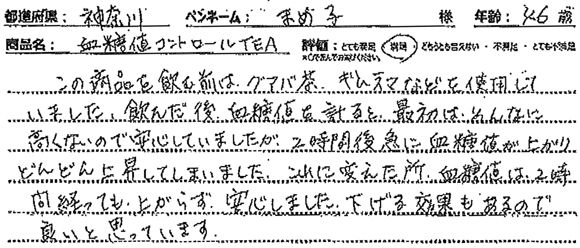 都道府県: 神奈川 ペンネーム: まめ子 様 年齢: 36 歳
商品名: 血糖値コントロールTEA 評価: とても満足・満足・どちらとも言えない・不満足・とても不満足
※○で囲んでお選びください。
この商品を飲む前は、グァバ茶、ギムネマなどを使用して
いました。飲んだ後、血糖値を計ると、最初は、そんなに
高くないので安心していましたが、2時間後急に血糖値が上がり
どんどん上昇してしまいました。これに変えた所、血糖値は、2時
間経っても、上がらず、安心しました。下げる効果もあるので
良いと思っています。